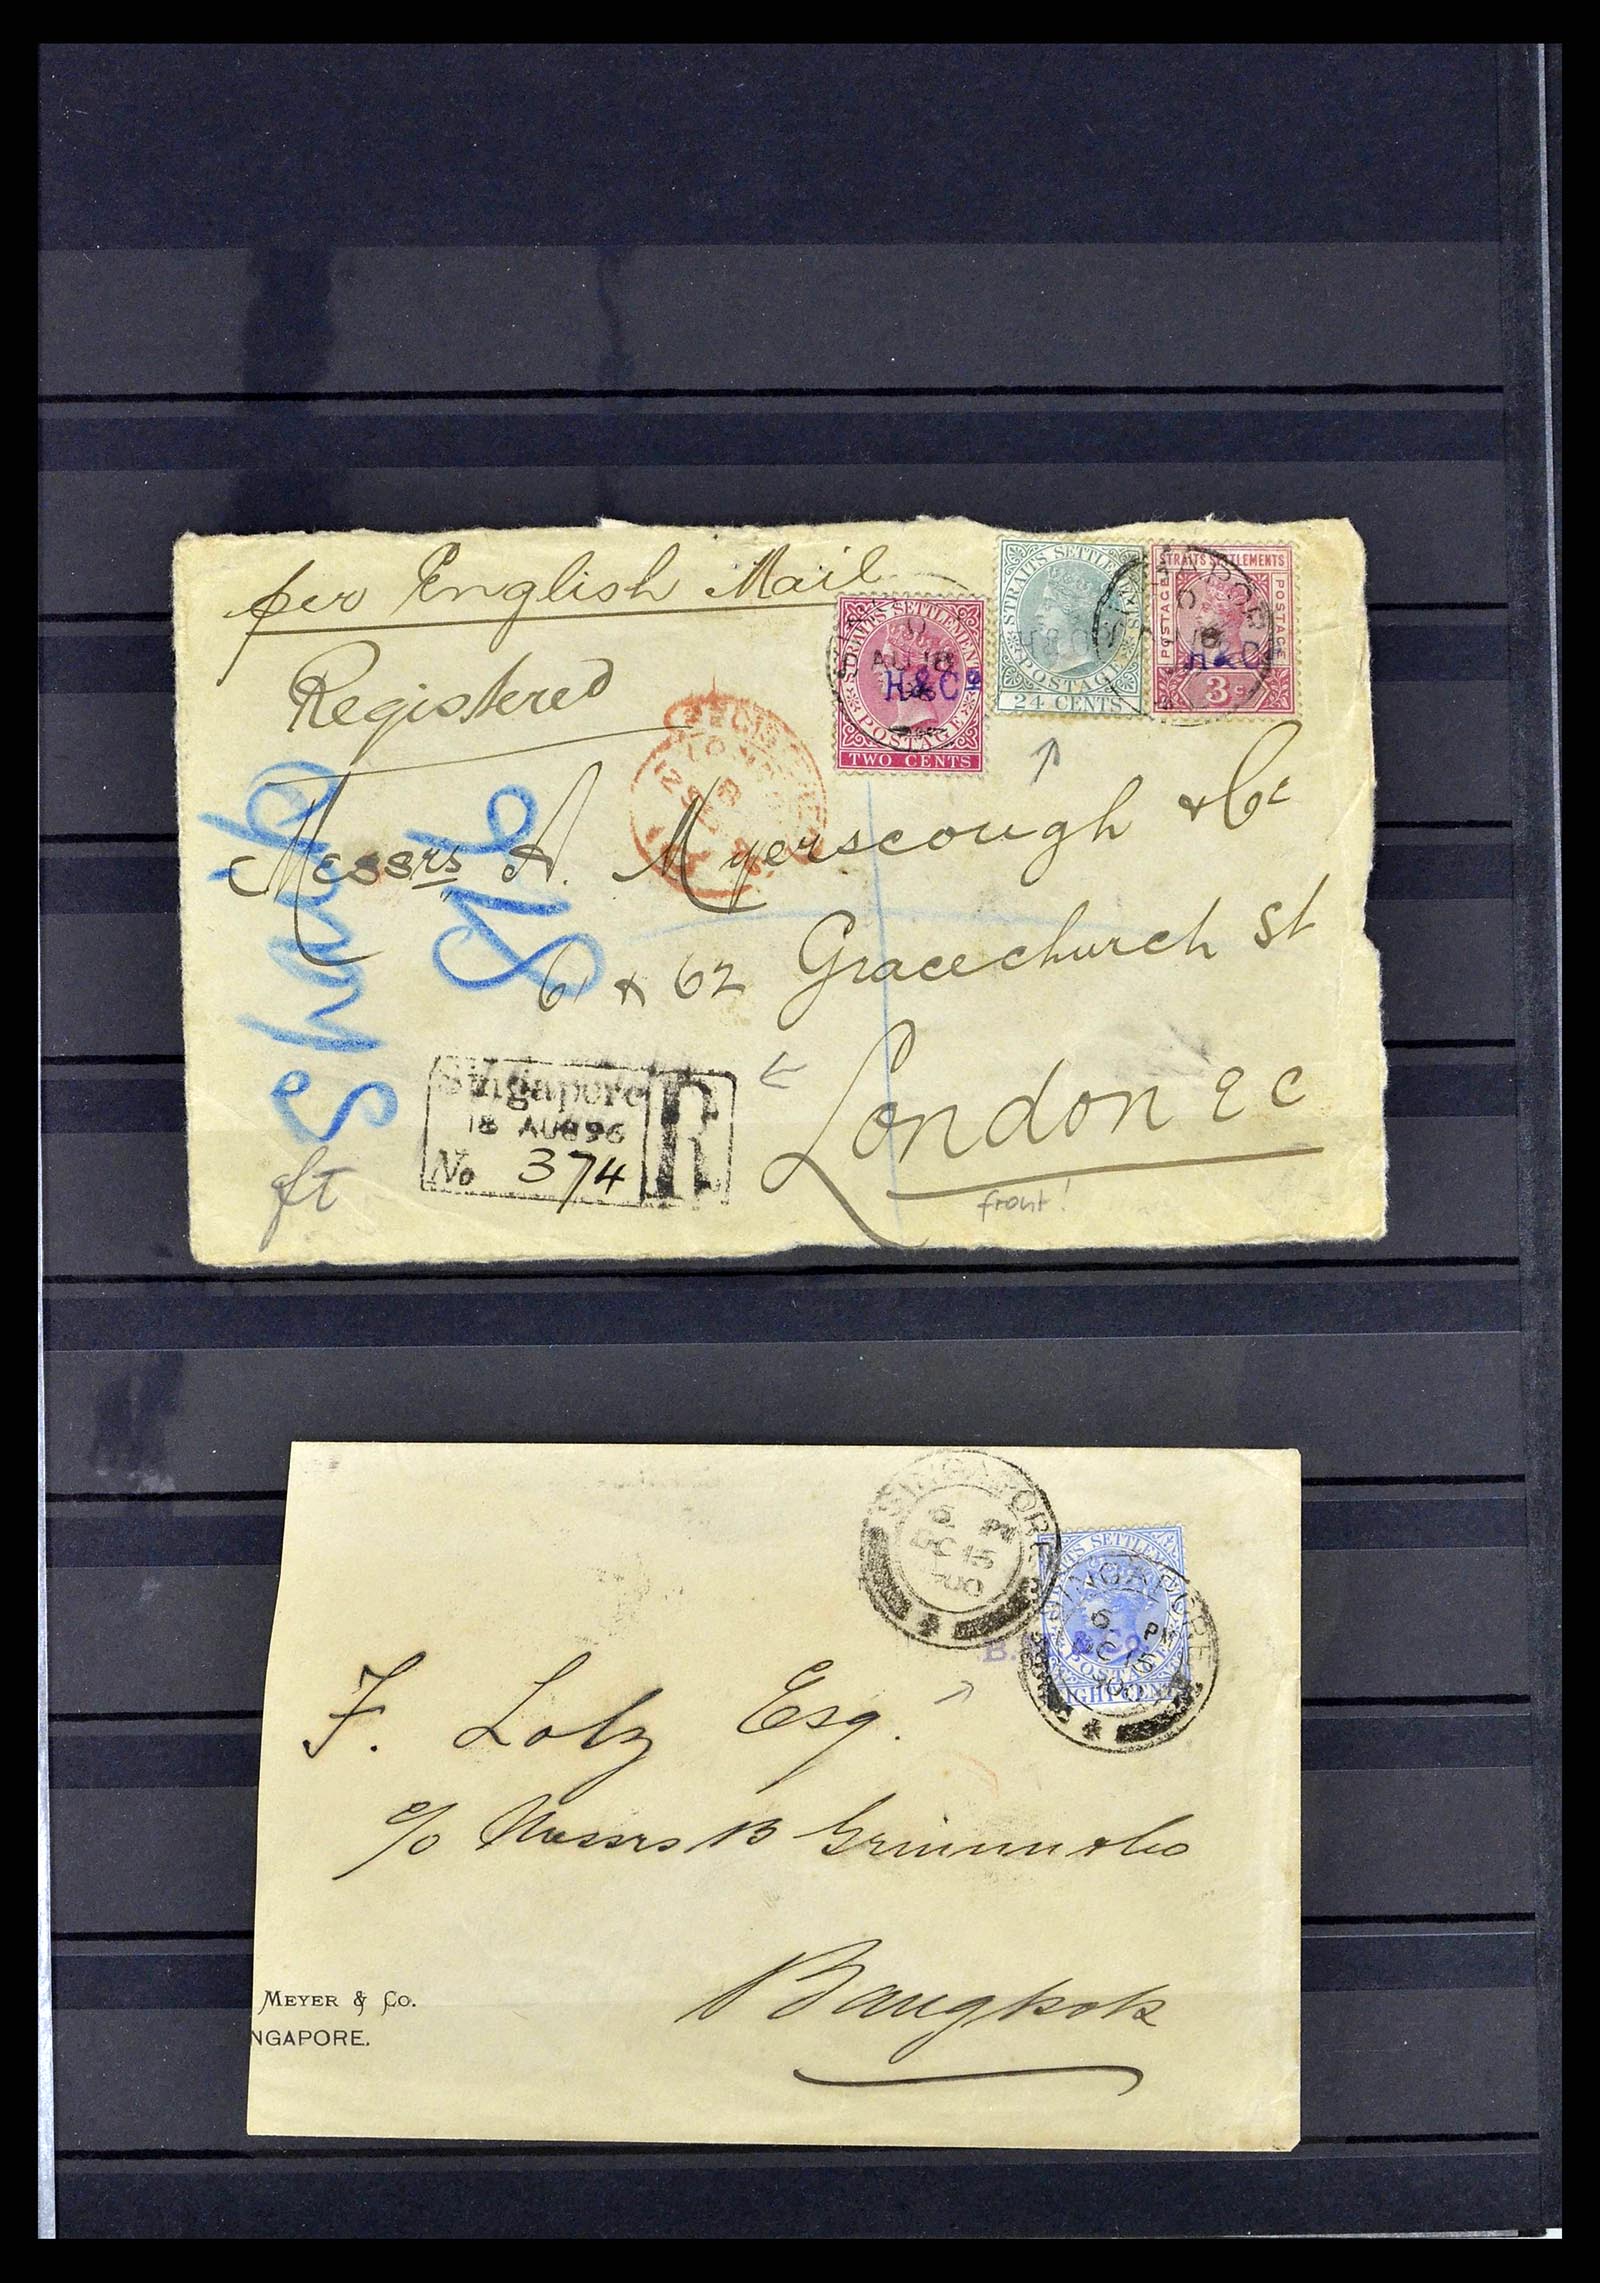 per English Mail
Registered
STRAITS SETTLEMENTS
POSTAGE
TWO CENTS
AU 18
H & Co
STRAITS SETTLEMENTS
POSTAGE
24 CENTS
STRAITS SETTLEMENTS
POSTAGE
POSTAGE
3 c
H & Co
Messrs A. Myerscough & Co
61 & 62 Gracechurch St
London E C
front!
Singapore
18 AU 96
No 374
R
SINGAPORE
6 PM
DC 15
90
STRAITS SETTLEMENTS
POSTAGE
EIGHT CENTS
SINGAPORE
6 PM
DC 15
90
B.
F. Lotz Esq.
c/o Messrs B Grimm & Co
Bangkok
MEYER & CO.
NGAPORE.